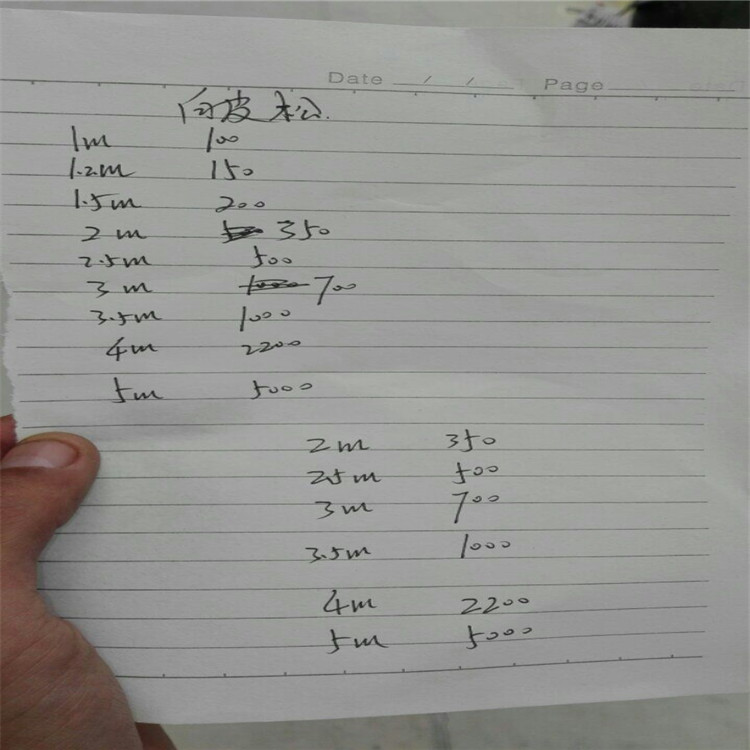 Date / / Page
白皮松.
1m 100
1.2m 150
1.5m 200
2m 350
2.5m 500
3m 700
3.5m 1000
4m 2200
5m 5000
2m 350
2.5m 500
3m 700
3.5m 1000
4m 2200
5m 5000